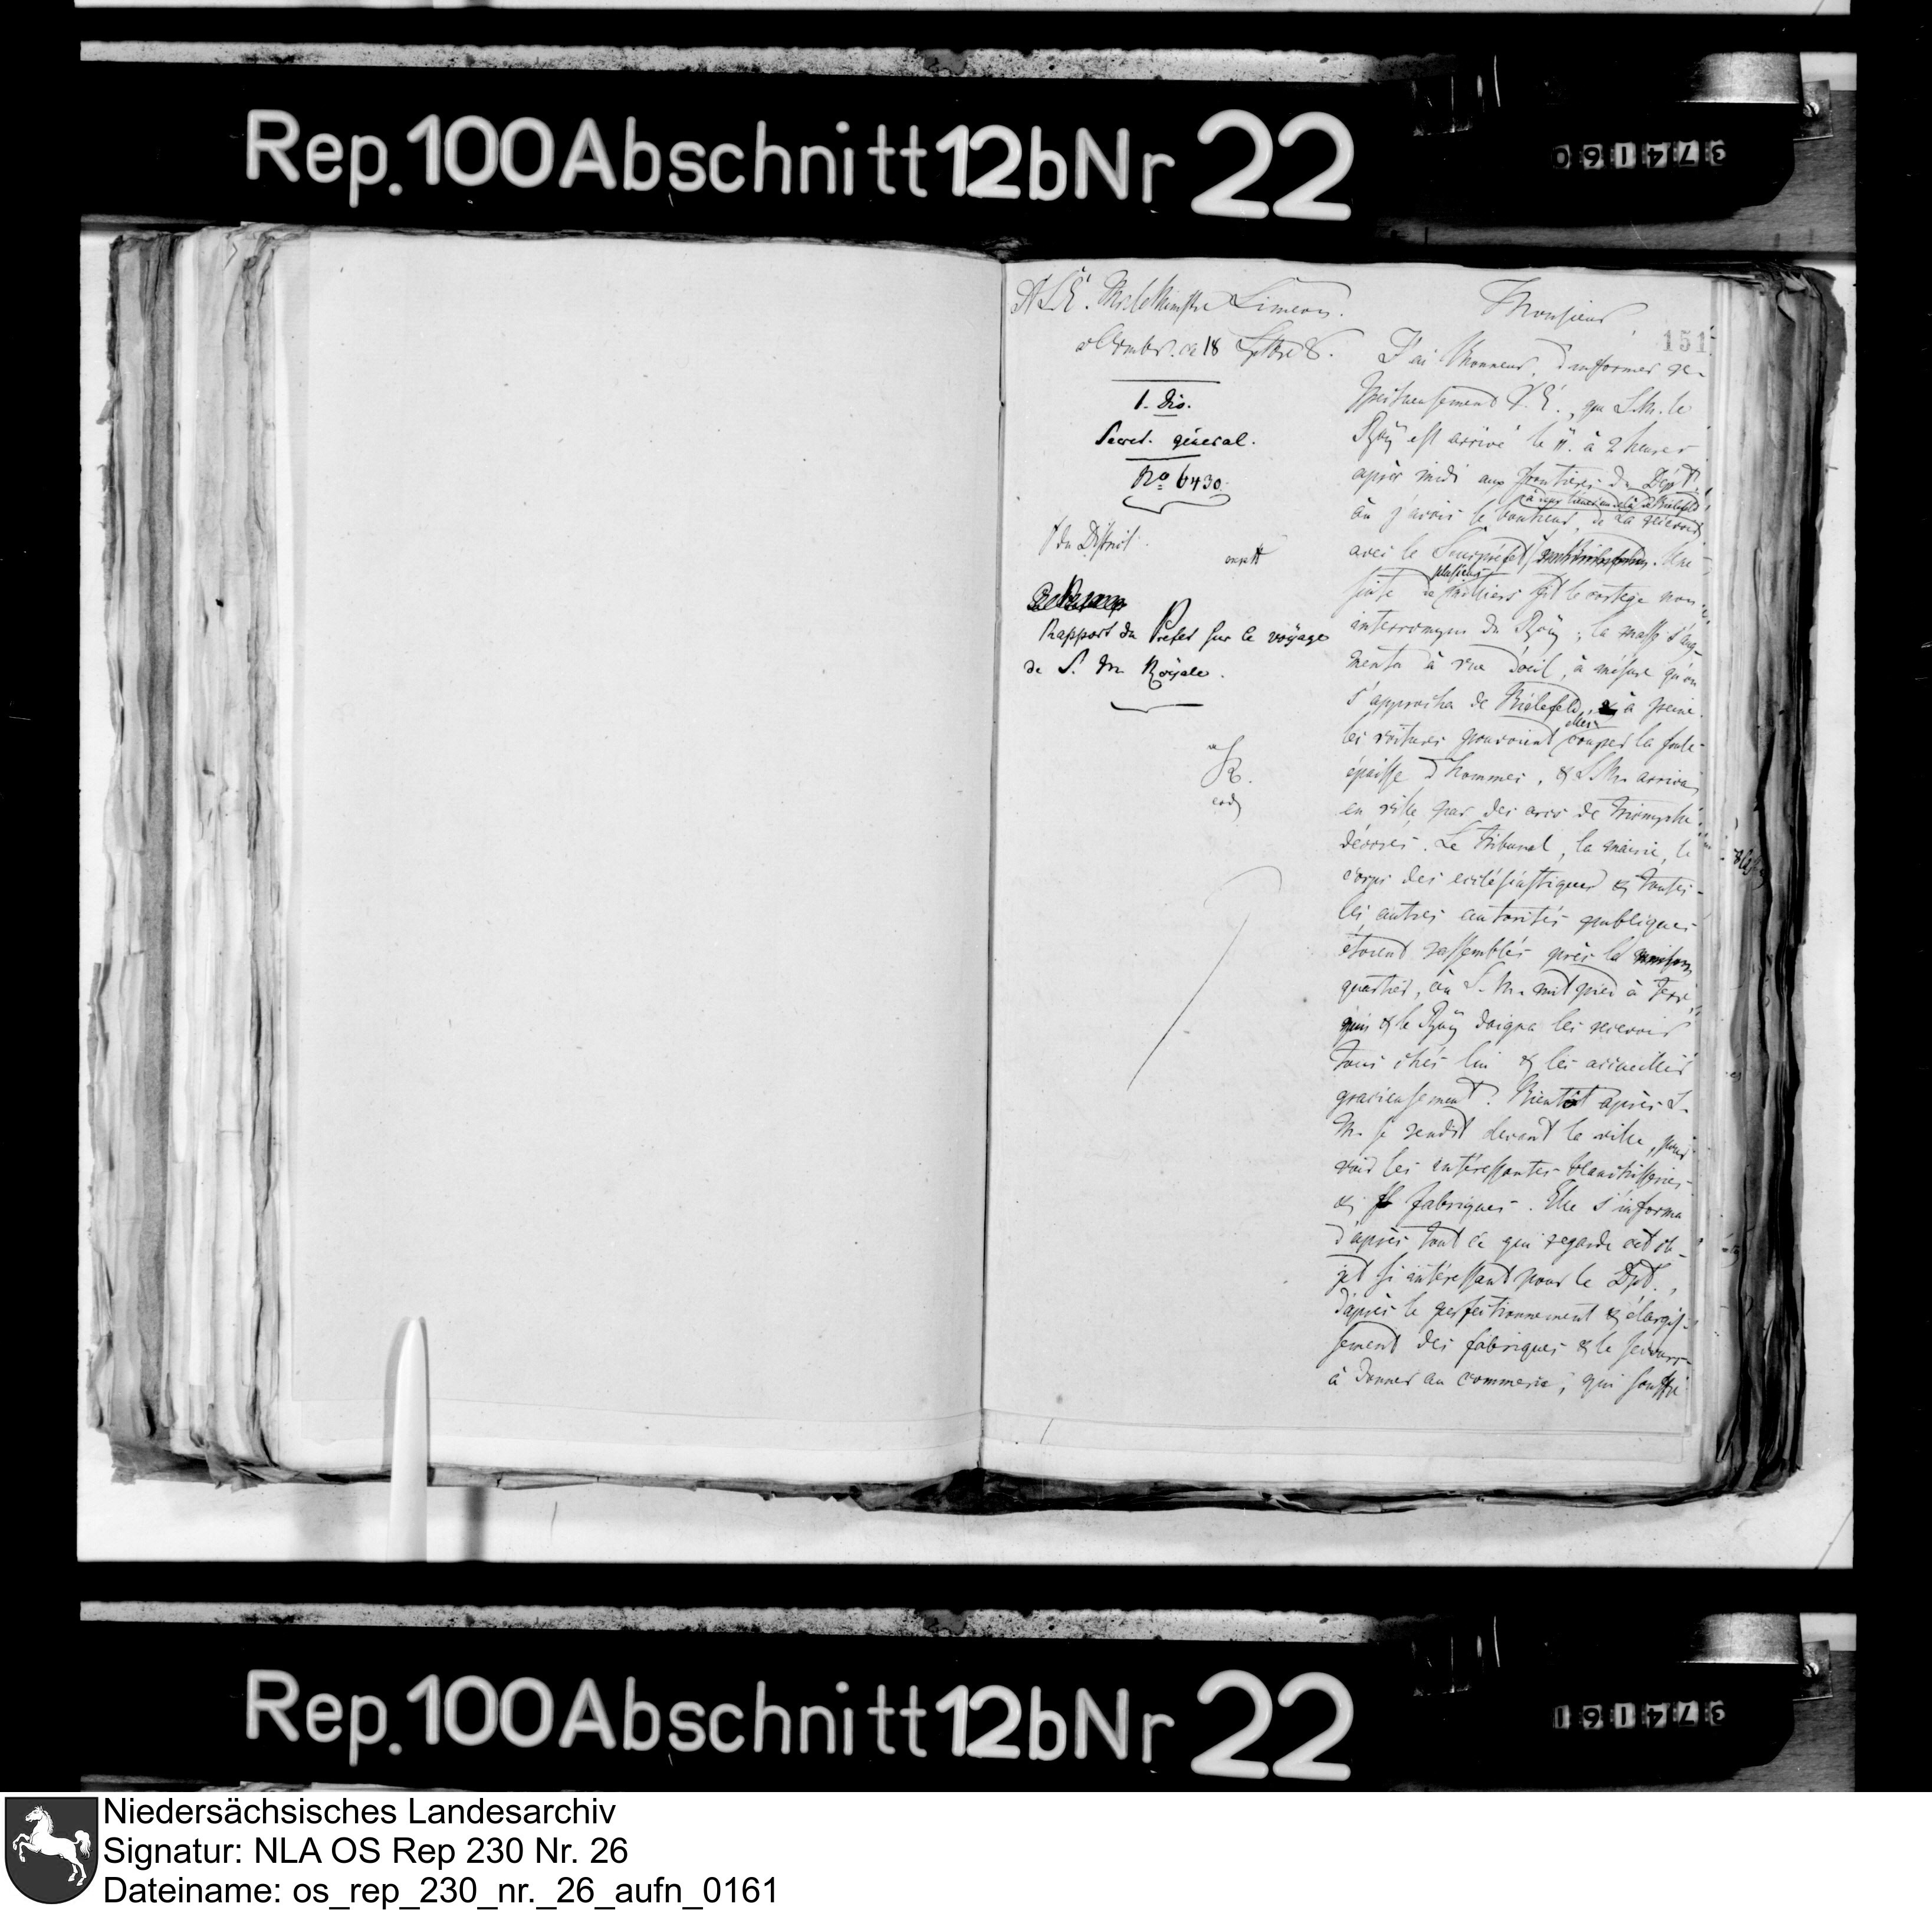 Rep. 100 Abschnitt 12b Nr 22
374160
151
A S. E. Mr. le Ministre Simeon.
ce 18 Septbre 8.
1. Div.
Secret. général.
No 6430.
du District
expdt
Rapport du Prefet sur le voÿage
de S. M. Roÿale.
Monsieur,
J'ai l'honneur, d'informer re-
spectueusement V. E., que S. M. le
Roÿ est arrivé le 11. à 2 heures
après midi aux frontières du Dépt.
à deux lieues en delà de Bielefeld
où j'avois le bonheur, de La recevoir
avec le Souspréfet. Une
plusieurs
suite de milliers fit le cortège non
interrompu du Roÿ; la masse s'aug-
menta à vue d'oeil, à mésure qu'on
s'approcha de Bielefeld, à peine
les voitures pouvoient couper la foule
épaisse d'hommes, & S. M. arriva
en ville par des arcs de triomphe
décorés. Le tribunal, la mairie, le
corps des ecclésiastiques & toutes
les autres autorités publiques
étoient rassemblés près le
quartier, où S. M. mit pied à terre
& le Roÿ daigna les recevoir
tous chés lui & les accueillir
gracieusement. Bientôt après S.
M. se rendit devant la ville, pour
voir les intéressantes blanchisseries
& fabriques. Elle s'informa
d'après tout ce qui regarde cet ob-
jet si intéressant pour le Dpt.,
d'après le perfectionnement & élargis-
sement des fabriques & le secours
à donner au commerce, qui souffre
Rep. 100 Abschnitt 12b Nr 22
374161
Niedersächsisches Landesarchiv
Signatur: NLA OS Rep 230 Nr. 26
Dateiname: os_rep_230_nr._26_aufn_0161